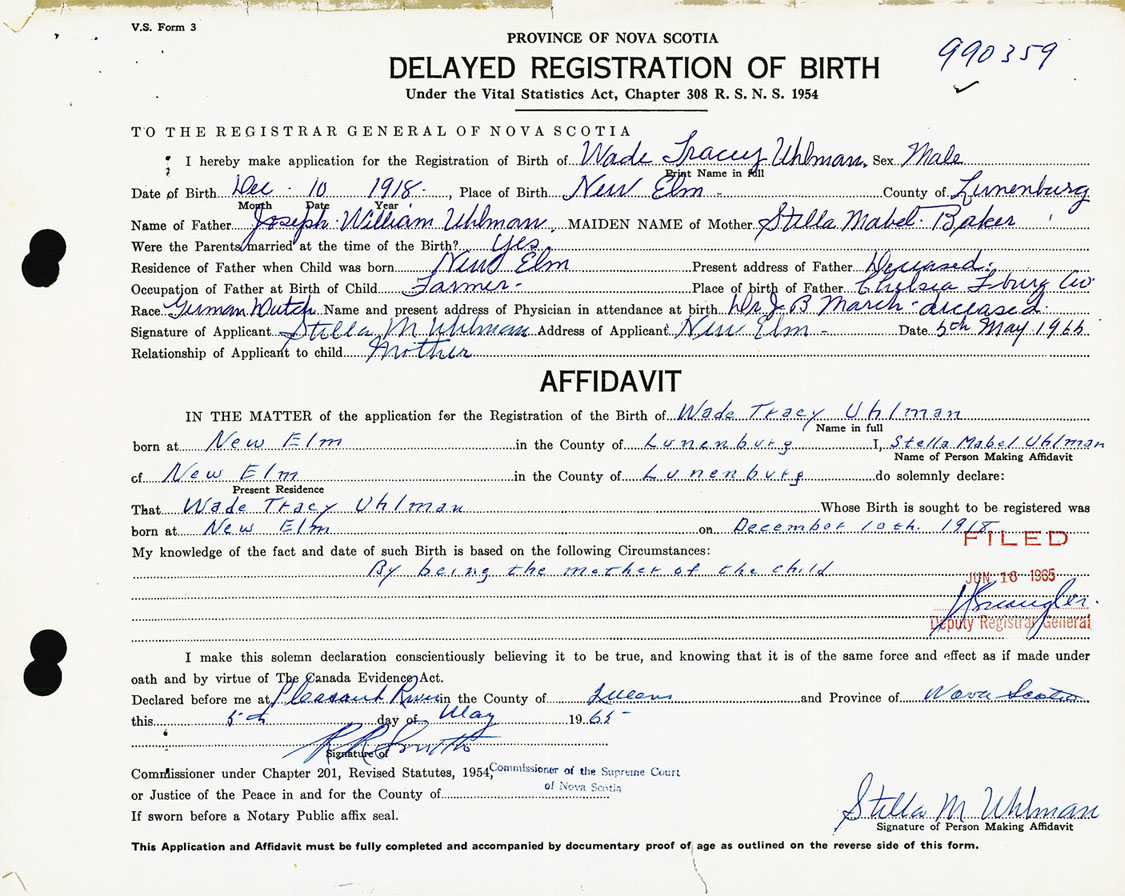 V.S. Form 3
PROVINCE OF NOVA SCOTIA
990359
DELAYED REGISTRATION OF BIRTH
Under the Vital Statistics Act, Chapter 308 R. S. N. S. 1954
TO THE REGISTRAR GENERAL OF NOVA SCOTIA
I hereby make application for the Registration of Birth of Wade Tracey Uhlman. Sex Male
Print Name in full
Date of Birth Dec - 10 1918. , Place of Birth New Elm - County of Lunenburg
Month Date Year
Name of Father Joseph William Uhlman, MAIDEN NAME of Mother Stella Mabel Baker
Were the Parents married at the time of the Birth? yes
Residence of Father when Child was born New Elm Present address of Father Deceased.
Occupation of Father at Birth of Child Farmer - Place of birth of Father Chelsea L'burg Co
Race German Dutch Name and present address of Physician in attendance at birth Dr J B March - deceased
Signature of Applicant Stella M Uhlman Address of Applicant New Elm - Date 5th May 1965
Relationship of Applicant to child Mother
AFFIDAVIT
IN THE MATTER of the application for the Registration of the Birth of Wade Tracy Uhlman
Name in full
born at New Elm in the County of Lunenburg I, Stella Mabel Uhlman
Name of Person Making Affidavit
of New Elm in the County of Lunenburg do solemnly declare:
Present Residence
That Wade Tracy Uhlman Whose Birth is sought to be registered was
born at New Elm on December 10th. 1918
FILED
My knowledge of the fact and date of such Birth is based on the following Circumstances:
By being the mother of the child
JUN 16 1965
Deputy Registrar General
I make this solemn declaration conscientiously believing it to be true, and knowing that it is of the same force and effect as if made under
oath and by virtue of The Canada Evidence Act.
Declared before me at Pleasant River in the County of Queens and Province of Nova Scotia
this 5th day of May 1965
R R Smith
Signature of
Commissioner under Chapter 201, Revised Statutes, 1954, Commissioner of the Supreme Court
of Nova Scotia
or Justice of the Peace in and for the County of
If sworn before a Notary Public affix seal.
Stella M Uhlman
Signature of Person Making Affidavit
This Application and Affidavit must be fully completed and accompanied by documentary proof of age as outlined on the reverse side of this form.